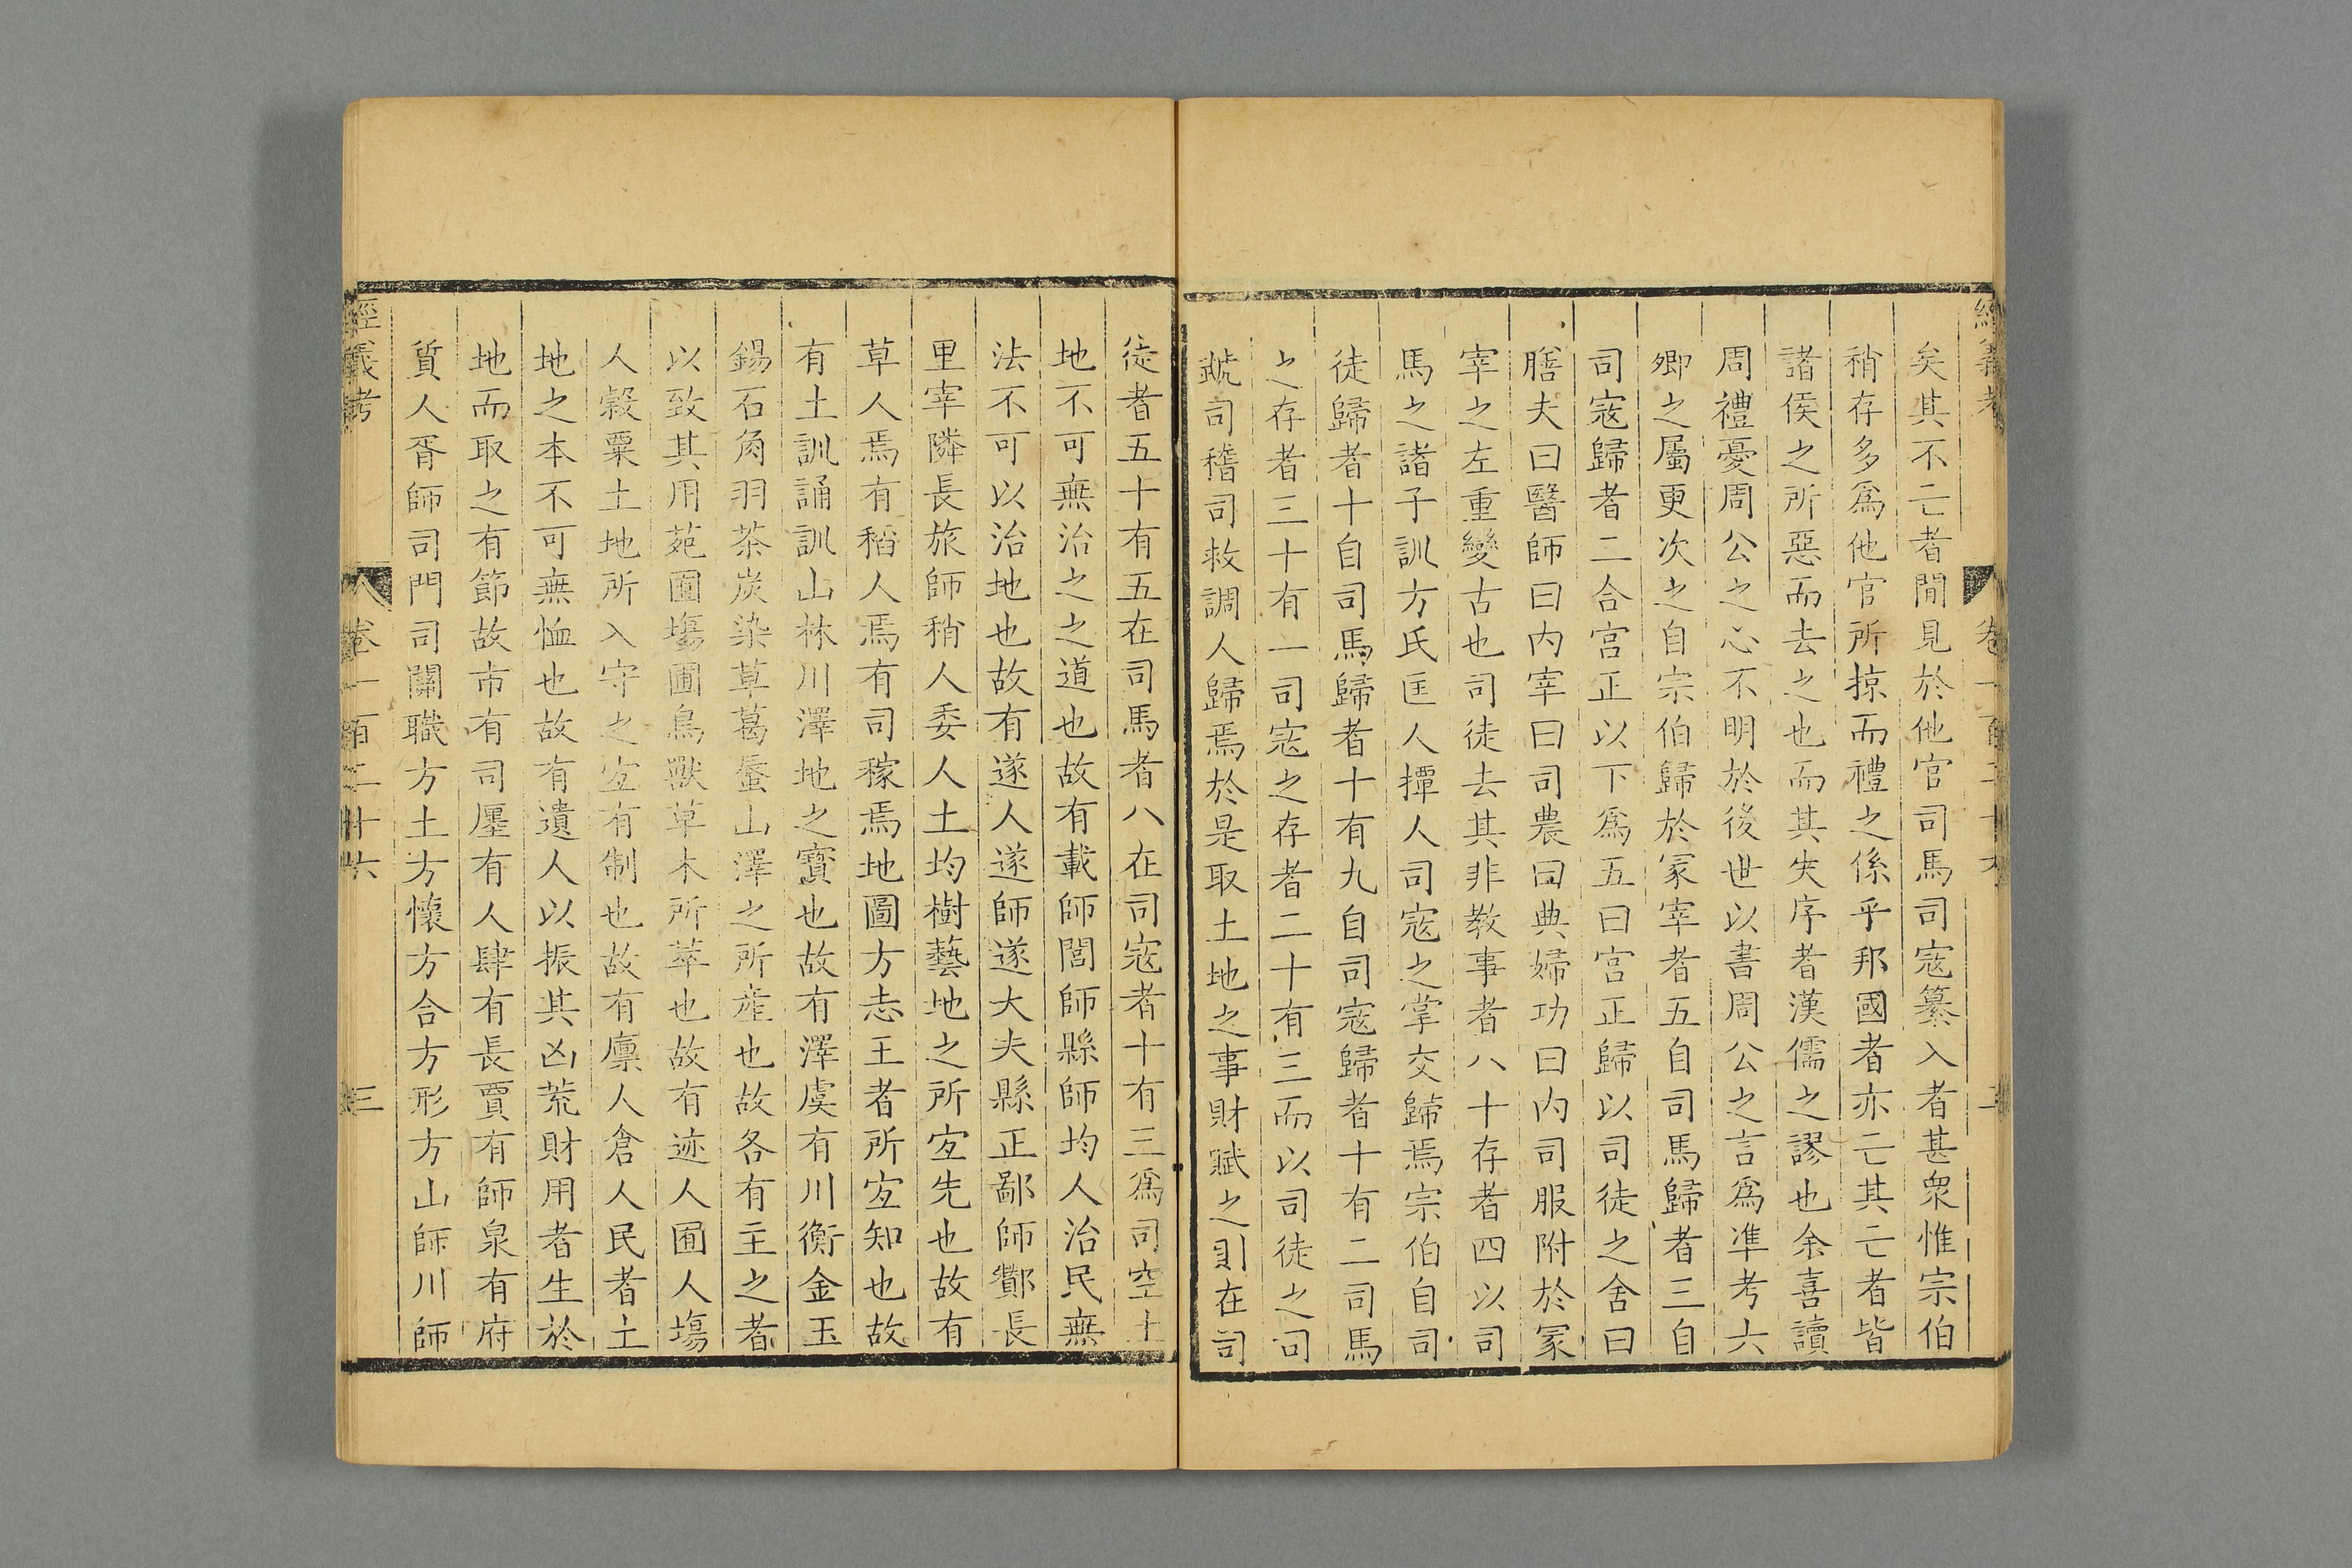 經義考 卷一百二十六 二
矣其不亡者閒見於他官司馬司寇纂入者甚衆惟宗伯
稍存多爲他官所掠而禮之係乎邦國者亦亡其亡者皆
諸侯之所惡而去之也而其失序者漢儒之謬也余喜讀
周禮憂周公之心不明於後世以書周公之言爲凖考六
卿之屬更次之自宗伯歸於冢宰者五自司馬歸者三自
司寇歸者二合宫正以下爲五曰宫正歸以司徒之舍曰
膳夫曰醫師曰内宰曰司農曰典婦功曰内司服附於冢
宰之左重變古也司徒去其非教事者八十存者四以司
馬之諸子訓方氏匡人撢人司寇之掌交歸焉宗伯自司
徒歸者十自司馬歸者十有九自司寇歸者十有二司馬
之存者三十有一司寇之存者二十有三而以司徒之司
虣司稽司救調人歸焉於是取土地之事財賦之則在司
徒者五十有五在司馬者八在司寇者十有三爲司空土
地不可無治之之道也故有載師閭師縣師均人治民無
法不可以治地也故有遂人遂師遂大夫縣正鄙師酇長
里宰隣長旅師稍人委人土均樹藝地之所宐先也故有
草人焉有稻人焉有司稼焉地圖方志王者所宐知也故
有土訓誦訓山林川澤地之寶也故有澤虞有川衡金玉
錫石角羽荼炭染草葛蜃山澤之所産也故各有主之者
以致其用苑囿塲圃鳥獸草木所萃也故有迹人囿人塲
人榖粟土地所入守之宐有制也故有廪人倉人民者土
地之本不可無恤也故有遺人以振其凶荒財用者生於
地而取之有節故市有司廛有人肆有長賈有師泉有府
質人胥師司門司關職方土方懷方合方形方山師川師
經義考 卷一百二十六 三